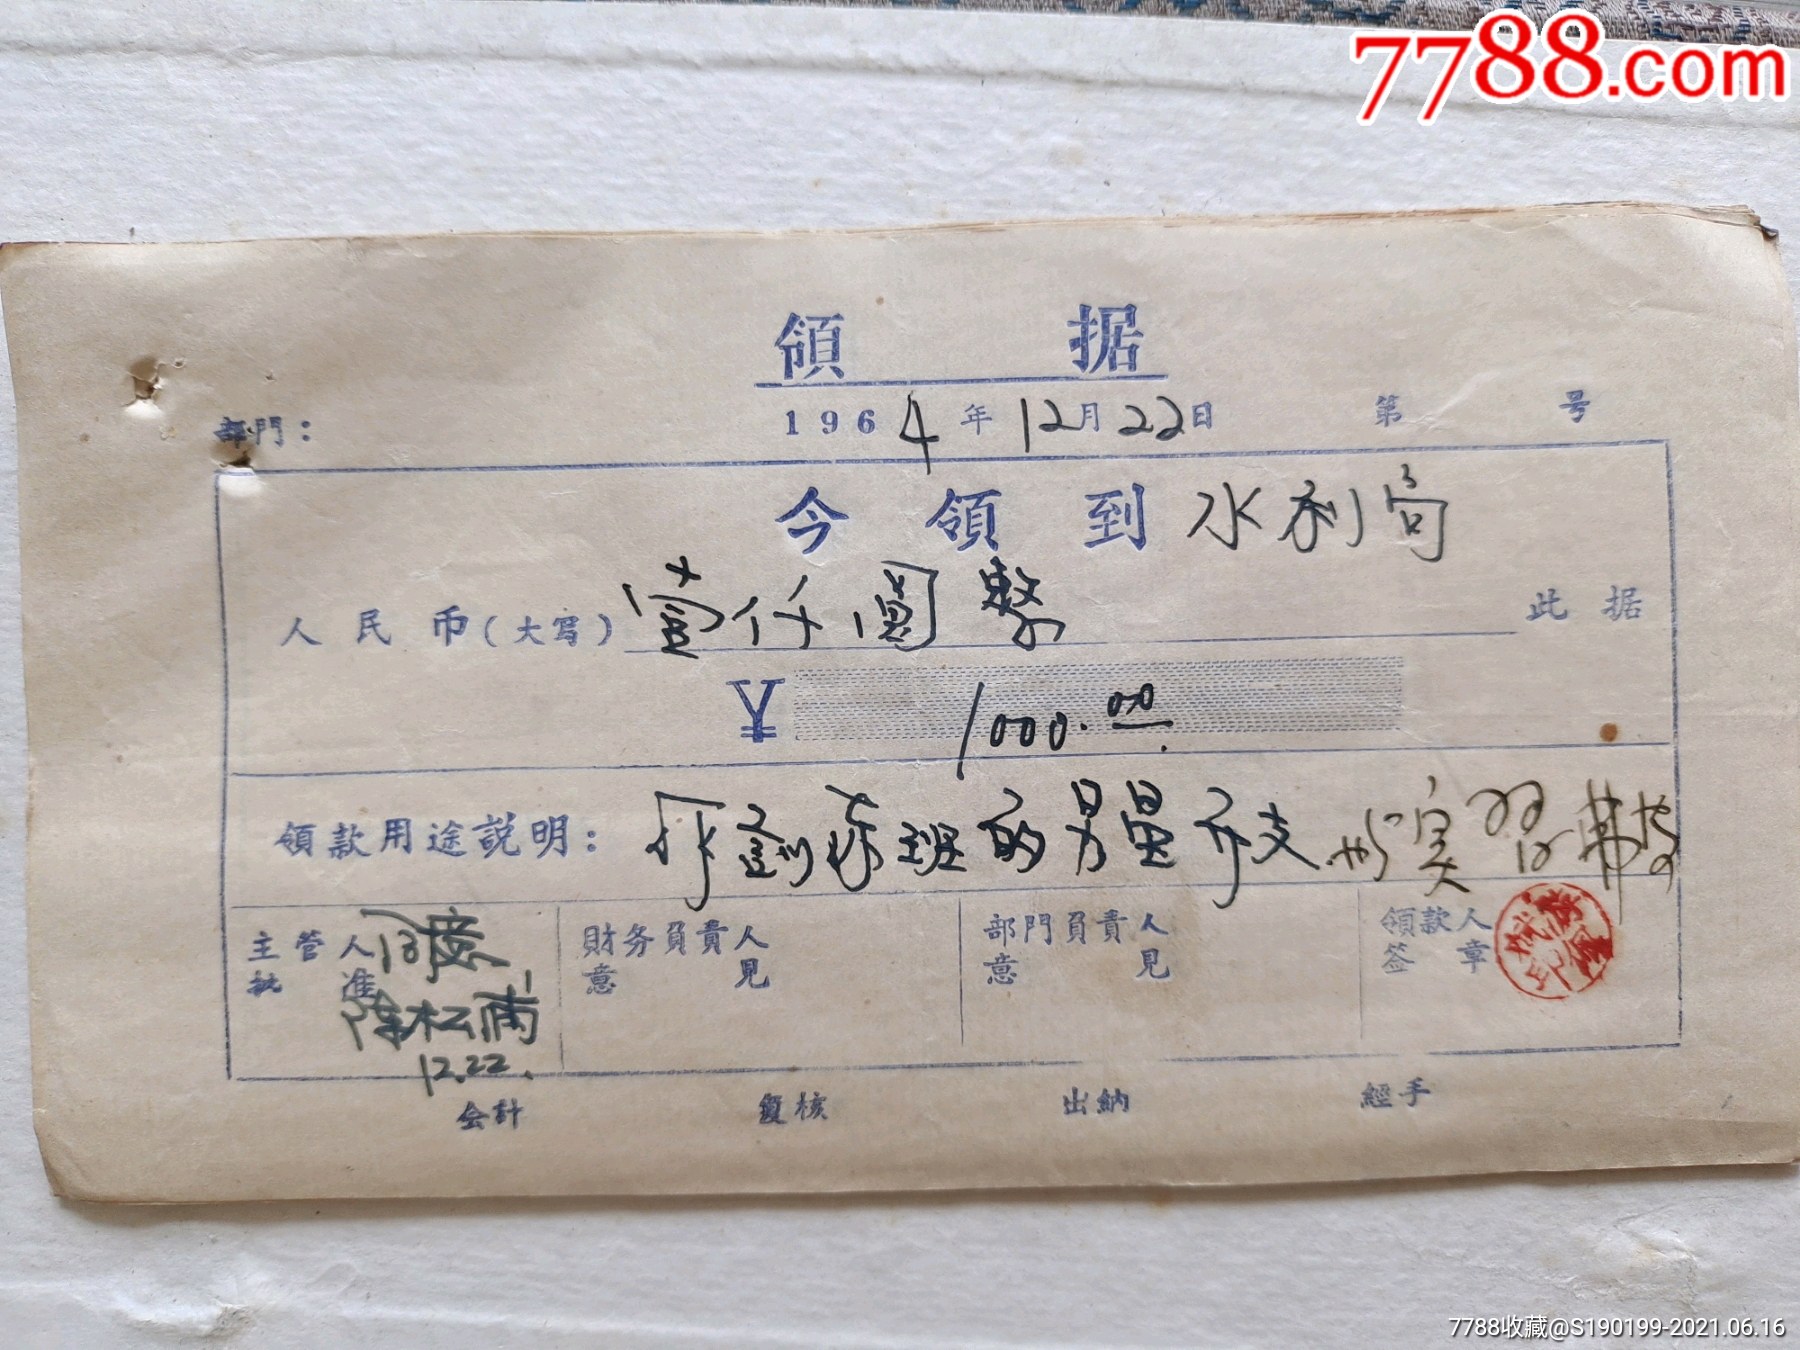 7788.com
領 据
部門: 1964年12月22日 第 号
今領到水利局
人民币(大写) 壹仟圆整 此据
¥ 1000.00
領款用途説明: 训 班 实习
主管人批准 同意 陈松甫 12.22.
財务負責人意見
部門負責人意見
領款人签章
会計 复核 出納 經手
7788收藏@S190199-2021.06.16